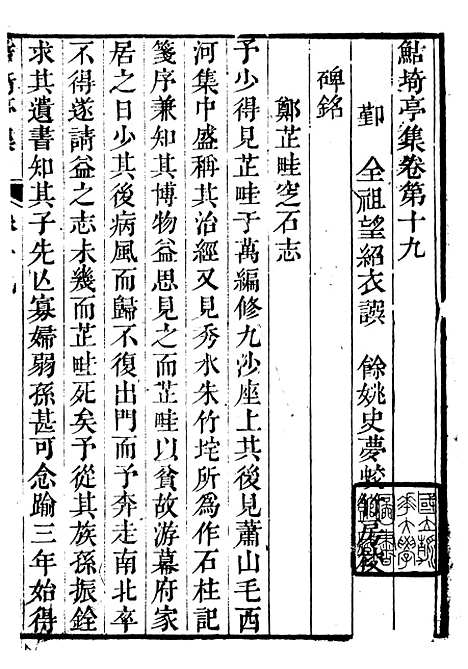 鮚埼亭集卷第十九
鄞　全祖望紹衣譔　餘姚史夢蛟
碑銘
鄭芷畦窆石志
予少得見芷畦于萬編修九沙座上其後見蕭山毛西
河集中盛稱其治經又見秀水朱竹垞所爲作石柱記
箋序兼知其博物益思見之而芷畦以貧故游幕府家
居之日少其後病風而歸不復出門而予奔走南北卒
不得遂請益之志未幾而芷畦死矣予從其族孫振銓
求其遺書知其子先亾寡婦弱孫甚可念踰三年始得